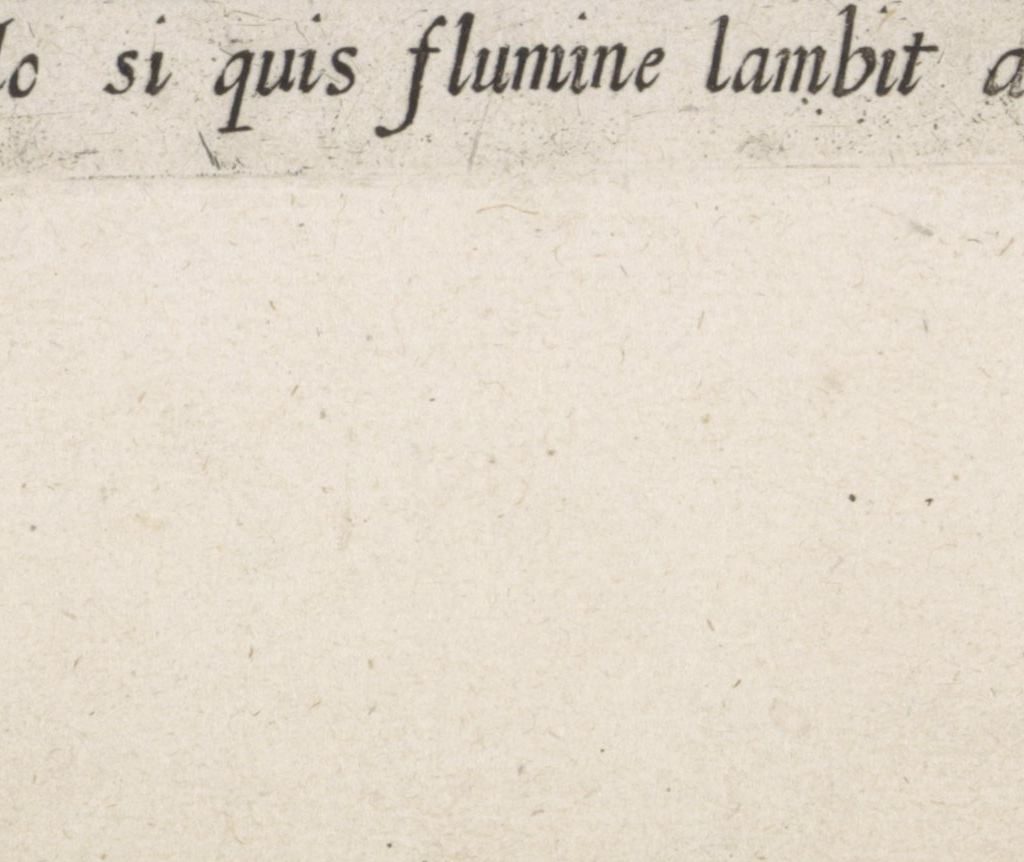 lo si quis flumine lambit a